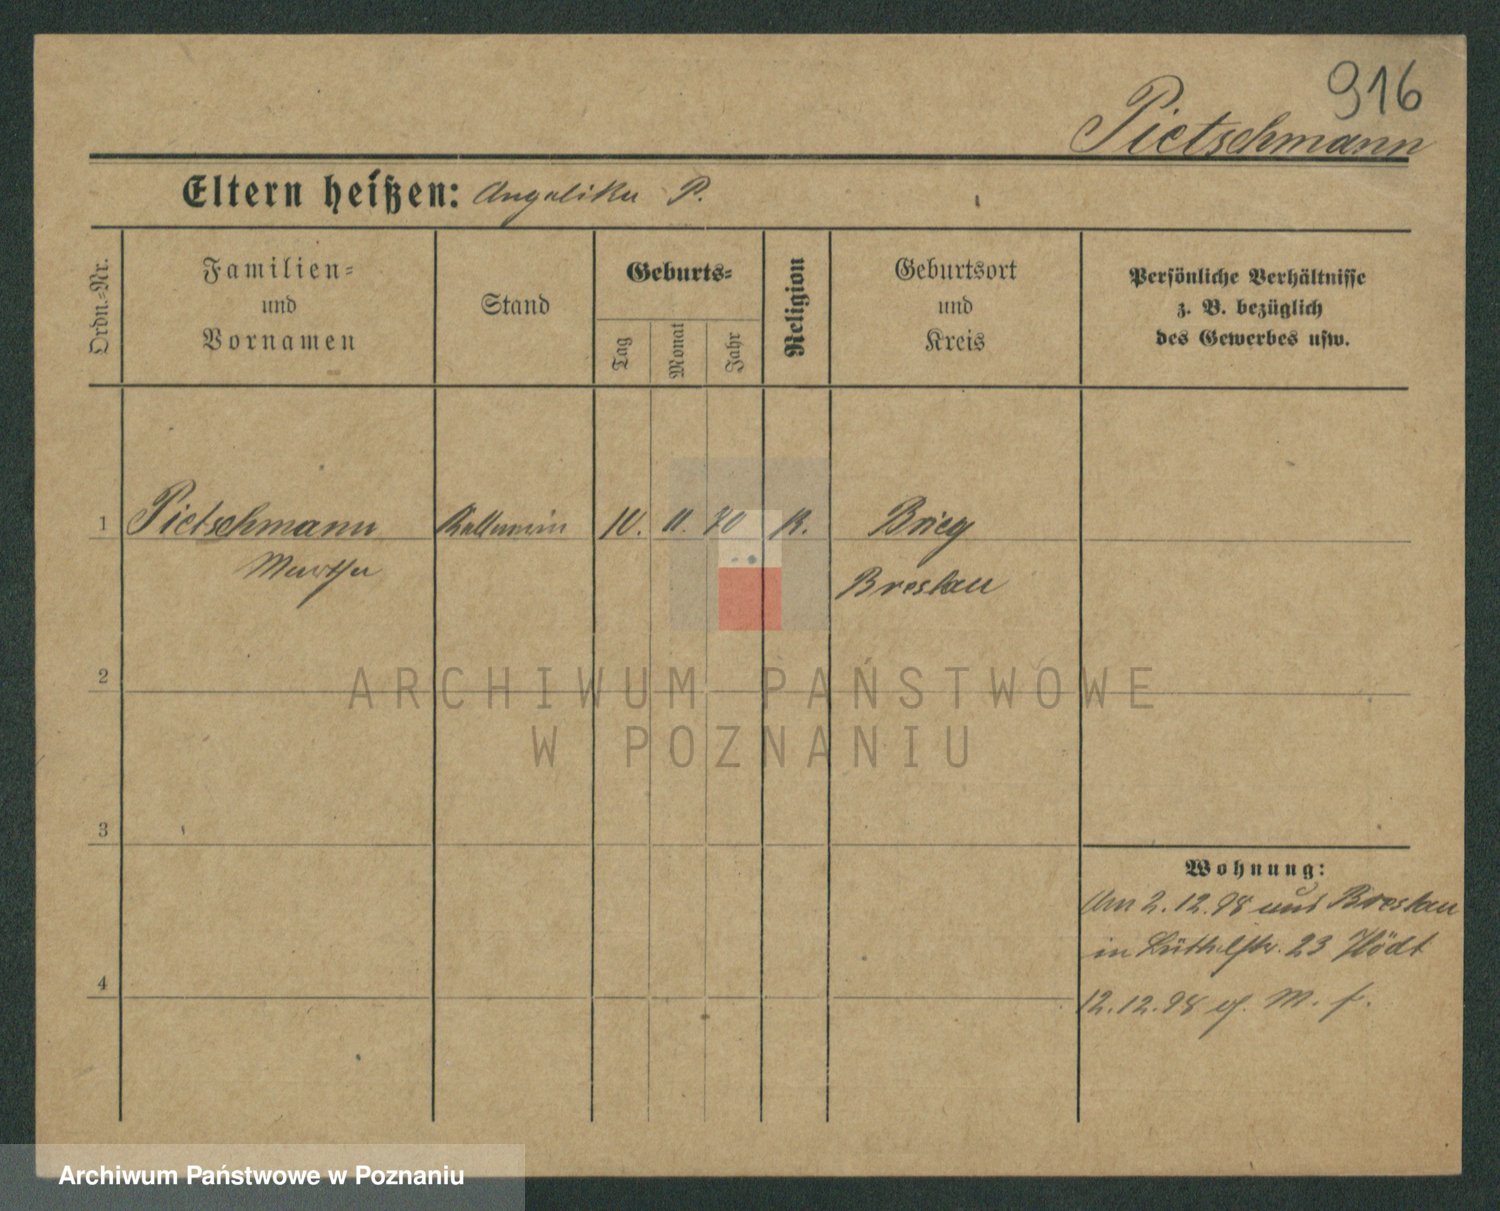 916
Pietschmann
Eltern heißen: Angelika P.
Ordn.-Nr.
Familien-
und
Vornamen
Stand
Geburts-
Tag
Monat
Jahr
Religion
Geburtsort
und
Kreis
Persönliche Verhältnisse
z. B. bezüglich
des Gewerbes usw.
1 Pietschmann Kellnerin 10. 11. 70 K. Brieg
Martha Breslau
2
ARCHIWUM PAŃSTWOWE
W POZNANIU
3
Wohnung:
Am 2.12.98 aus Breslau
in 23
4
12.12.98
Archiwum Państwowe w Poznaniu